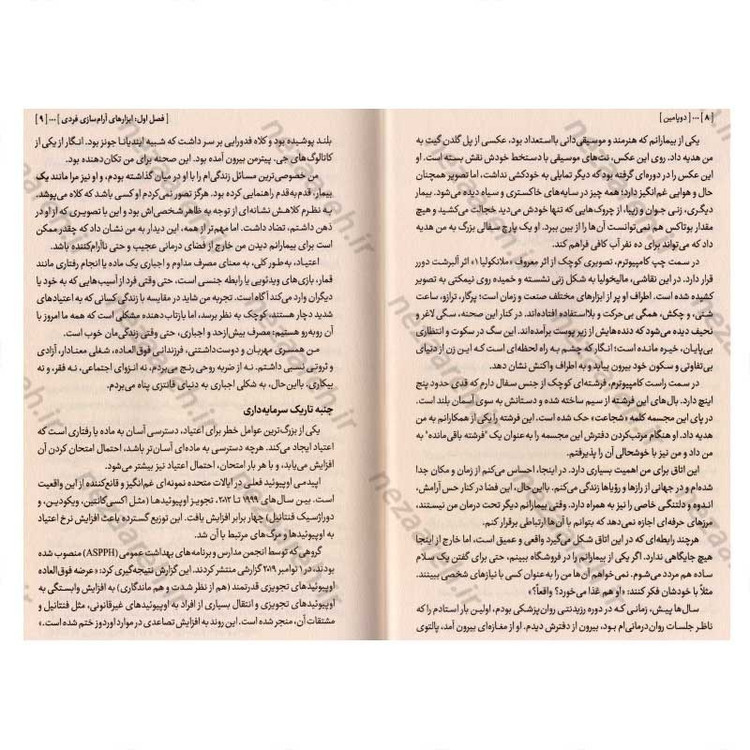 [ ۸ ] ... [ دوپامین ]
یکی از بیمارانم که هنرمند و موسیقی‌دانی بااستعداد بود، عکسی از پل گلدن گیت به
من هدیه داد. روی این عکس، نت‌های موسیقی با دستخط خودش نقش بسته است. او
این عکس را در دوره‌ای گرفته بود که دیگر تمایلی به خودکشی نداشت، اما تصویر همچنان
حال و هوایی غم‌انگیز دارد؛ همه چیز در سایه‌های خاکستری و سیاه دیده می‌شود. بیمار
دیگری، زنی جوان و زیبا، از چروک‌هایی که تنها خودش می‌دید خجالت می‌کشید و هیچ
مقدار بوتاکس هم نمی‌توانست آن‌ها را از بین ببرد. او یک پارچ سفالی بزرگ به من هدیه
داد که می‌تواند برای ده نفر آب کافی فراهم کند.
در سمت چپ کامپیوترم، تصویری کوچک از اثر معروف «ملانکولیا ۱» اثر آلبرشت دورر
قرار دارد. در این نقاشی، مالیخولیا به شکل زنی نشسته و خمیده روی نیمکتی به تصویر
کشیده شده است. اطراف او پر از ابزارهای مختلف صنعت و زمان است؛ پرگار، ترازو، ساعت
شنی، و چکش، همگی بی‌حرکت و بلااستفاده افتاده‌اند. در کنار این صحنه، سگی لاغر و
نحیف دیده می‌شود که دنده‌هایش از زیر پوست برآمده‌اند. این سگ در سکوت و انتظاری
بی‌پایان، خیره مانده است؛ انگار که چشم به راه لحظه‌ای است که این زن از دنیای
بی‌تفاوتی و سکون خود بیرون بیاید و به دنیای اطراف واکنش نشان دهد.
در سمت راست کامپیوترم، فرشته‌ای کوچک از جنس سفال دارم که قدی حدود پنج
اینچ دارد. بال‌های این فرشته از سیم ساخته شده و دستانش به سوی آسمان بلند است.
در پای این مجسمه کلمه «شجاعت» حک شده است. این فرشته را یکی از همکارانم به من
هدیه داد. او هنگام مرتب‌کردن دفترش این مجسمه را به‌عنوان یک «فرشته باقی‌مانده» به
من داد و من نیز با خوشحالی آن را پذیرفتم.
این اتاق برای من اهمیت بسیاری دارد. در اینجا، احساس می‌کنم از زمان و مکان جدا
شده‌ام و در جهانی از رازها و رؤیاها زندگی می‌کنم. بااین‌حال، این فضا در کنار حس آرامش،
اندوه و دلتنگی خاصی را نیز به همراه دارد. وقتی بیمارانم دیگر تحت درمان من نیستند،
مرزهای حرفه‌ای اجازه نمی‌دهد که بتوانم با آن‌ها ارتباطی برقرار کنم.
هرچند رابطه‌ای که در این اتاق شکل می‌گیرد واقعی و عمیق است، اما خارج از اینجا
هیچ جایگاهی ندارد. اگر یکی از بیمارانم را در فروشگاه ببینم، حتی برای گفتن یک سلام
ساده هم مردد می‌شوم. نمی‌خواهم آن‌ها من را به‌عنوان کسی با نیازهای شخصی ببینند.
مثلاً با خودشان فکر کنند: «او هم غذا می‌خورد؟ واقعاً؟»
سال‌ها پیش، زمانی که در دوره رزیدنتی روان‌پزشکی بودم، اولین بار استادم را که
ناظر جلسات روان‌درمانی‌ام بود، بیرون از دفترش دیدم. او از مغازه‌ای بیرون آمد، پالتوی
[ فصل اول: ابزارهای آرام‌سازی فردی ] ... [ ۹ ]
بلند پوشیده بود و کلاه فدورایی بر سر داشت که شبیه ایندیانا جونز بود. انگار از یکی از
کاتالوگ‌های جی. پیترمن بیرون آمده بود. این صحنه برای من تکان‌دهنده بود.
من خصوصی‌ترین مسائل زندگی‌ام را با او در میان گذاشته بودم، و او نیز مرا مانند یک
بیمار، قدم‌به‌قدم راهنمایی کرده بود. هرگز تصور نمی‌کردم او کسی باشد که کلاه می‌پوشد.
به نظرم کلاهش نشانه‌ای از توجه به ظاهر شخصی‌اش بود و این با تصویری که از او در
ذهن داشتم، تضاد داشت. اما مهم‌تر از همه، این دیدار به من نشان داد که چقدر ممکن
است برای بیمارانم دیدن من خارج از فضای درمانی عجیب و حتی ناآرام‌کننده باشد.
اعتیـاد، به‌طور کلی، به معنای مصرف مداوم و اجباری یک ماده یا انجام رفتاری مانند
قمار، بازی‌های ویدئویی یا رابطه جنسی است، حتی وقتی فرد از آسیب‌هایی که به خود یا
دیگران وارد می‌کند آگاه است. تجربه من شاید در مقایسه با زندگی کسانی که به اعتیادهای
شدید دچار هستند، کوچک به نظر برسد، اما بازتاب‌دهنده مشکلی است که همه ما امروز با
آن روبه‌رو هستیم: مصرف بیش‌ازحد و اجباری، حتی وقتی زندگی‌مان خوب است.
من همسری مهربان و دوست‌داشتنی، فرزندانی فوق‌العاده، شغلی معنادار، آزادی
و ثروتی نسبی داشتم. نـه از ضربه روحی رنج می‌بردم، نه انزوای اجتماعی، نـه فقر، و نه
بیکاری. بااین‌حال، به شکلی اجباری به دنیای فانتزی پناه می‌بردم.
جنبه تاریک سرمایه‌داری
یکی از بزرگ‌ترین عوامل خطر برای اعتیاد، دسترسی آسان به ماده یا رفتاری است که
اعتیاد ایجاد می‌کند. هرچه دسترسی به ماده‌ای آسان‌تر باشد، احتمال امتحان کردن آن
افزایش می‌یابد، و با هر بار امتحان، احتمال اعتیاد نیز بیشتر می‌شود.
اپیدمـی اوپیوئید فعلی در ایالات متحده نمونه‌ای غم‌انگیز و قانع‌کننده از این واقعیت
است. بین سال‌های ۱۹۹۹ تا ۲۰۱۲، تجویز اوپیوئیدها (مثل اکسی کانتین، ویکودین، و
دوراژسیک فنتانیل) چهار برابر افزایش یافت. این توزیع گسترده باعث افزایش نرخ اعتیاد
به اوپیوئیدها و مرگ‌های مرتبط با آن شد.
گروهی که توسط انجمن مدارس و برنامه‌های بهداشت عمومی (ASPPH) منصوب شده
بودند، در ۱ نوامبر ۲۰۱۹ گزارشی منتشر کردند. این گزارش نتیجه‌گیری کرد: «عرضه فوق‌العاده
اوپیوئیدهای تجویزی قدرتمند (هم از نظر شدت و هم ماندگاری) به افزایش وابستگی به
اوپیوئیدهای تجویزی و انتقال بسیاری از افراد به اوپیوئیدهای غیرقانونی، مثل فنتانیل و
مشتقات آن، منجر شده است. این روند به افزایش تصاعدی در موارد اوردوز ختم شده است.»